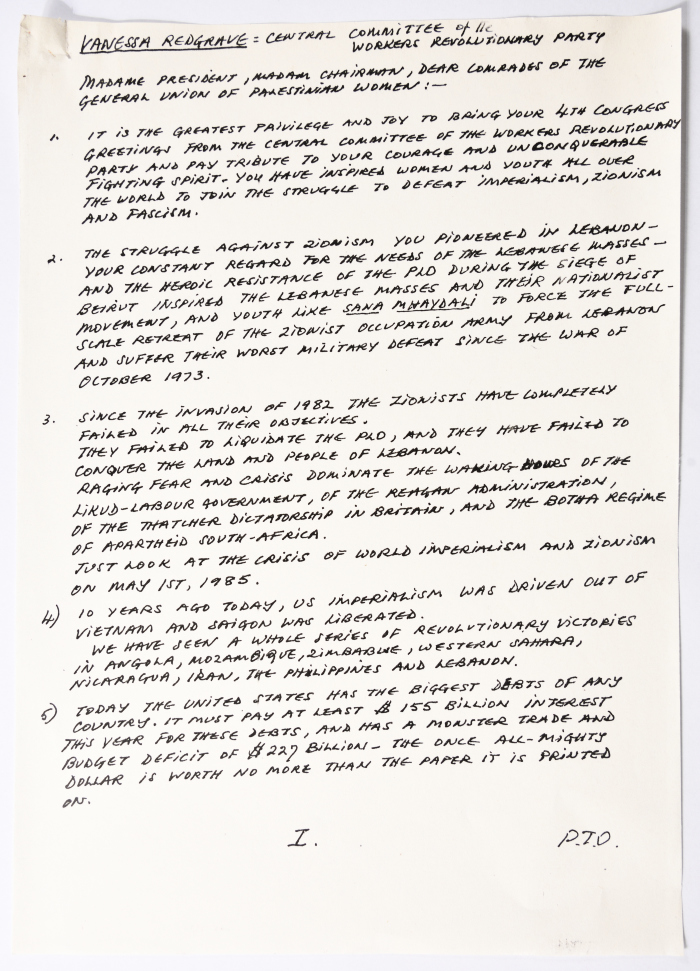 VANESSA REDGRAVE = CENTRAL COMMITTEE of the
WORKERS REVOLUTIONARY PARTY
MADAME PRESIDENT, MADAM CHAIRMAN, DEAR COMRADES OF THE
GENERAL UNION OF PALESTINIAN WOMEN:—
1. IT IS THE GREATEST PRIVILEGE AND JOY TO BRING YOUR 4TH CONGRESS
GREETINGS FROM THE CENTRAL COMMITTEE OF THE WORKERS REVOLUTIONARY
PARTY AND PAY TRIBUTE TO YOUR COURAGE AND UNCONQUERABLE
FIGHTING SPIRIT. YOU HAVE INSPIRED WOMEN AND YOUTH ALL OVER
THE WORLD TO JOIN THE STRUGGLE TO DEFEAT IMPERIALISM, ZIONISM
AND FASCISM.
2. THE STRUGGLE AGAINST ZIONISM YOU PIONEERED IN LEBANON—
YOUR CONSTANT REGARD FOR THE NEEDS OF THE LEBANESE MASSES—
AND THE HEROIC RESISTANCE OF THE PLO DURING THE SIEGE OF
BEIRUT INSPIRED THE LEBANESE MASSES AND THEIR NATIONALIST
MOVEMENT, AND YOUTH LIKE SANA MHAYDALI TO FORCE THE FULL-
SCALE RETREAT OF THE ZIONIST OCCUPATION ARMY FROM LEBANON
AND SUFFER THEIR WORST MILITARY DEFEAT SINCE THE WAR OF
OCTOBER 1973.
3. SINCE THE INVASION OF 1982 THE ZIONISTS HAVE COMPLETELY
FAILED IN ALL THEIR OBJECTIVES.
THEY FAILED TO LIQUIDATE THE PLO, AND THEY HAVE FAILED TO
CONQUER THE LAND AND PEOPLE OF LEBANON.
RAGING FEAR AND CRISIS DOMINATE THE WAKING HOURS OF THE
LIKUD-LABOUR GOVERNMENT, OF THE REAGAN ADMINISTRATION,
OF THE THATCHER DICTATORSHIP IN BRITAIN, AND THE BOTHA REGIME
OF APARTHEID SOUTH-AFRICA.
JUST LOOK AT THE CRISIS OF WORLD IMPERIALISM AND ZIONISM
ON MAY 1ST, 1985.
4) 10 YEARS AGO TODAY, US IMPERIALISM WAS DRIVEN OUT OF
VIETNAM AND SAIGON WAS LIBERATED.
WE HAVE SEEN A WHOLE SERIES OF REVOLUTIONARY VICTORIES
IN ANGOLA, MOZAMBIQUE, ZIMBABWE, WESTERN SAHARA,
NICARAGUA, IRAN, THE PHILIPPINES AND LEBANON.
5) TODAY THE UNITED STATES HAS THE BIGGEST DEBTS OF ANY
COUNTRY. IT MUST PAY AT LEAST $ 155 BILLION INTEREST
THIS YEAR FOR THESE DEBTS, AND HAS A MONSTER TRADE AND
BUDGET DEFICIT OF $227 BILLION— THE ONCE ALL-MIGHTY
DOLLAR IS WORTH NO MORE THAN THE PAPER IT IS PRINTED
ON.
I. P.T.O.